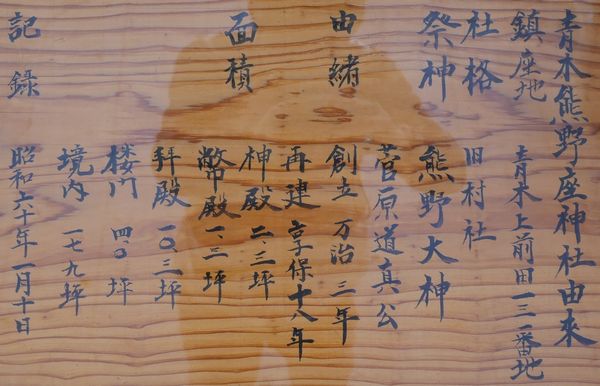 青木熊野座神社由来
鎮座地 青木上前田一三一番地
社格 旧村社
祭神 熊野大神
菅原道真公
由緒 創立 万治三年
再建 享保十八年
面積 神殿 二、三坪
幣殿 一、三坪
拝殿 一〇、三坪
楼門 四、〇坪
境内 一七九坪
記録 昭和六十年一月十日